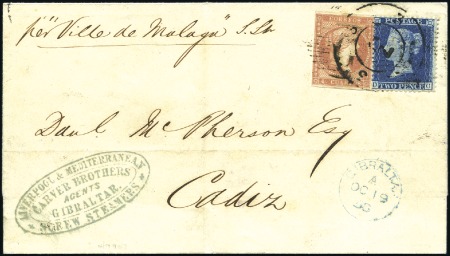 per "Ville de Malaga" S. Str
CORREOS
POSTAGE
TWO PENCE
Daul McPherson Esq
Cadiz
LIVERPOOL & MEDITERRANEAN
CARVER BROTHERS
AGENTS
GIBRALTAR.
SCREW STEAMERS
GIBRALTAR
A
OC 19
58